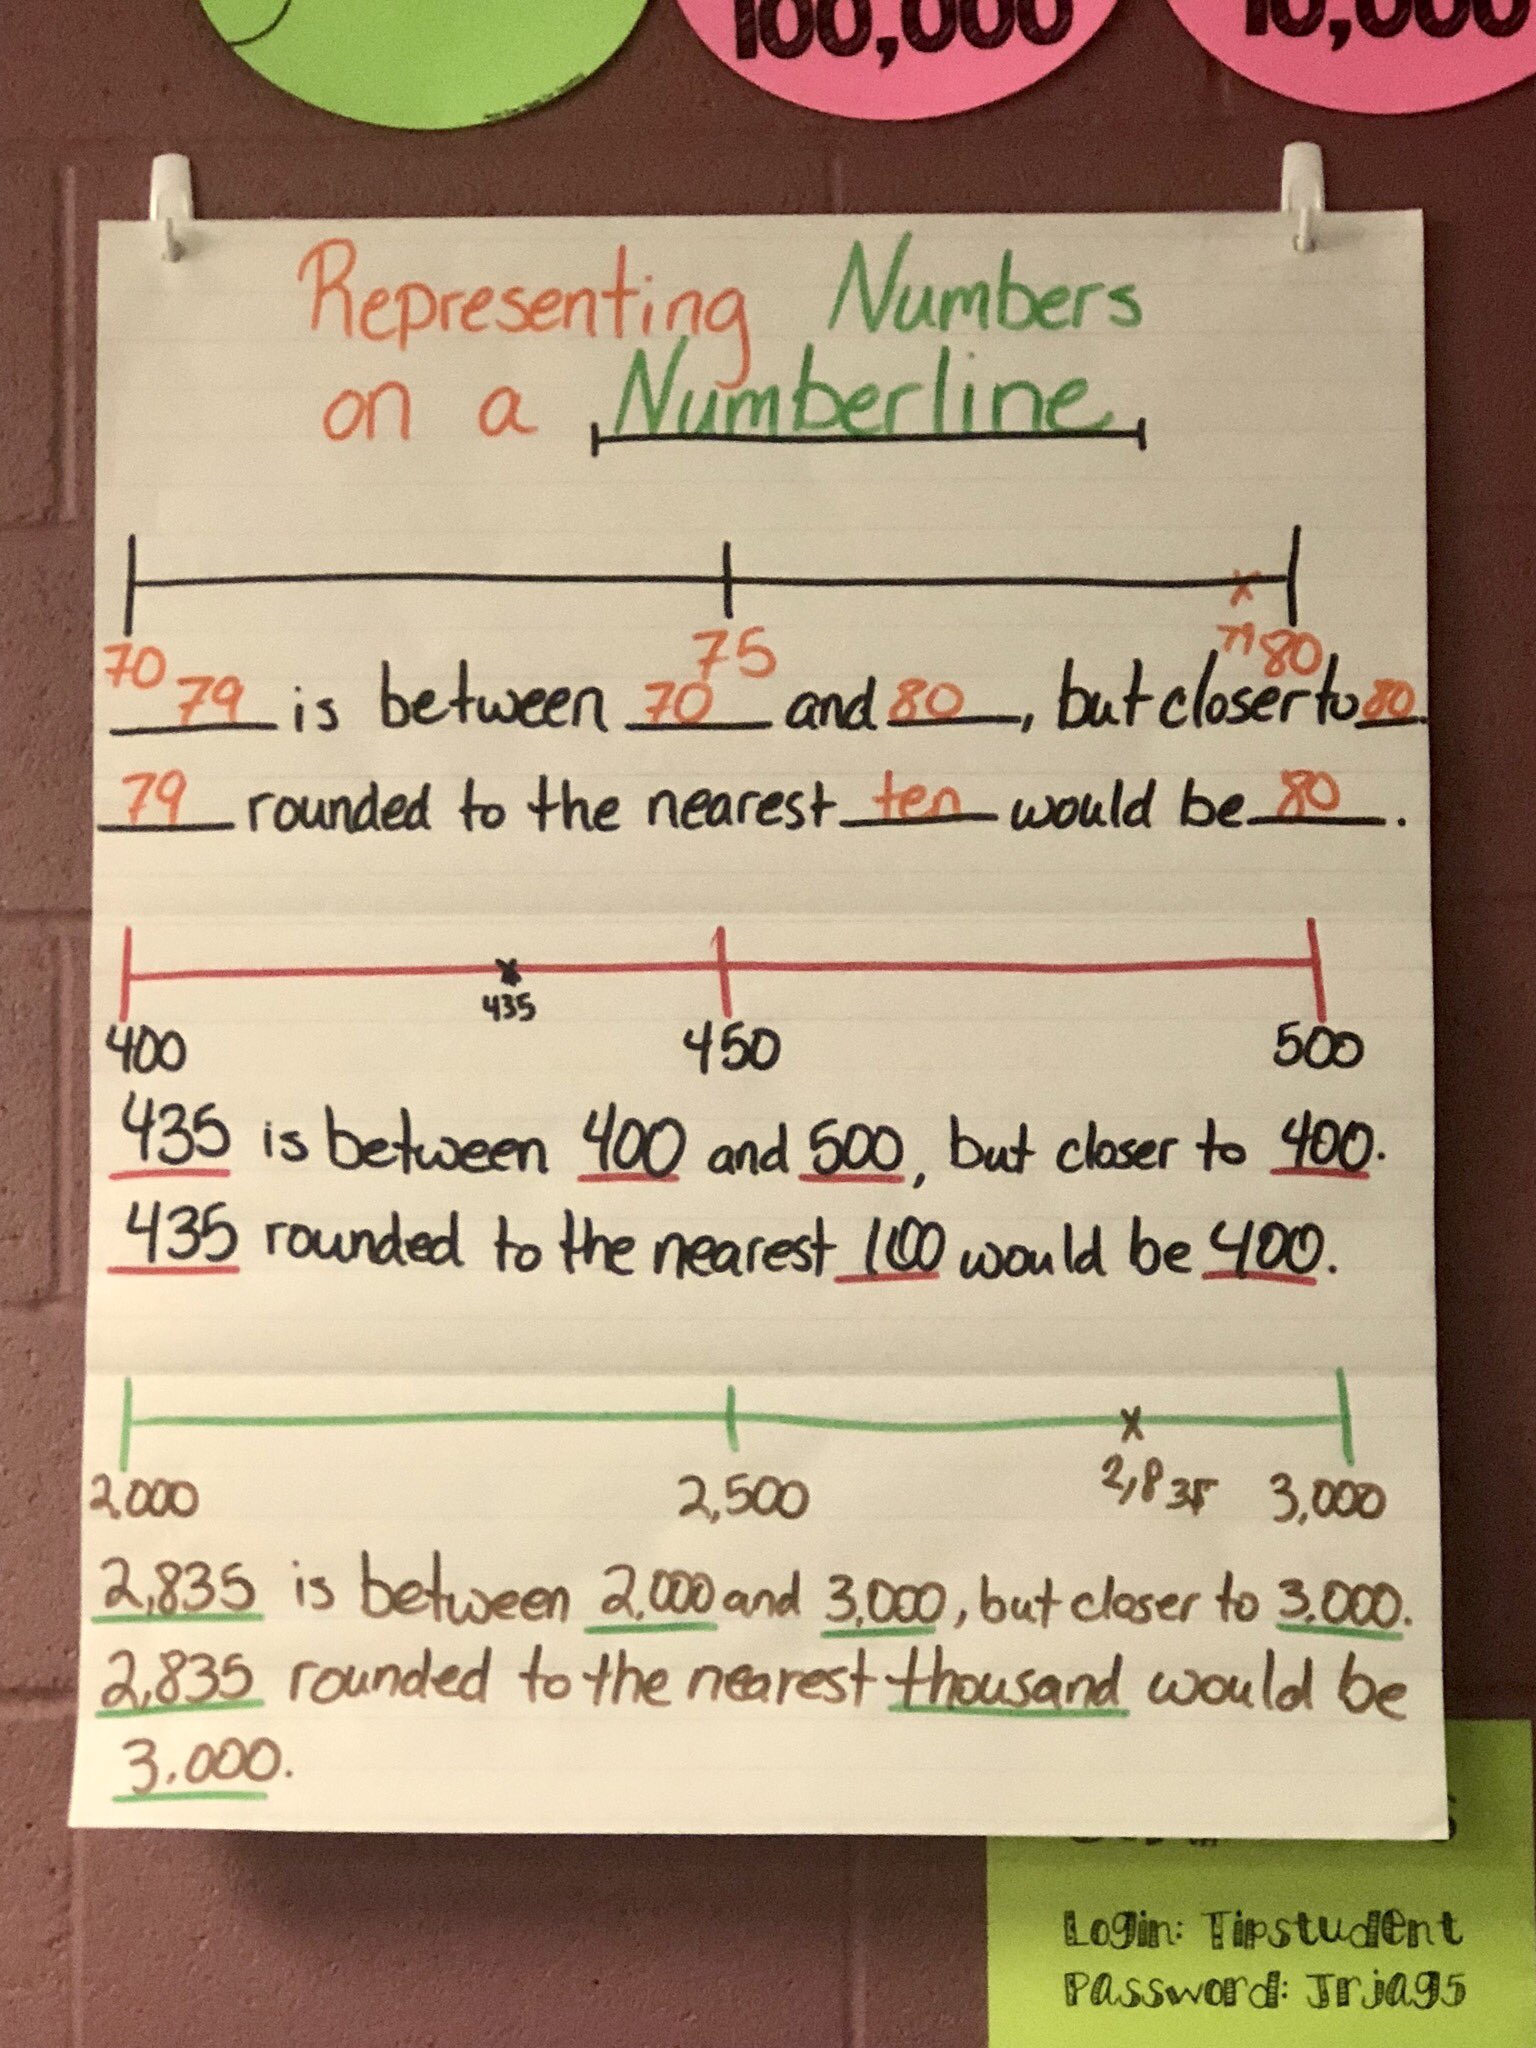 100,000
10,000
Representing Numbers
on a Numberline
70 75 79 80
79 is between 70 and 80, but closer to 80.
79 rounded to the nearest ten would be 80.
435
400 450 500
435 is between 400 and 500, but closer to 400.
435 rounded to the nearest 100 would be 400.
2,000 2,500 2,835 3,000
2,835 is between 2,000 and 3,000, but closer to 3,000.
2,835 rounded to the nearest thousand would be
3,000.
Login: Tipstudent
Password: Jrjag5